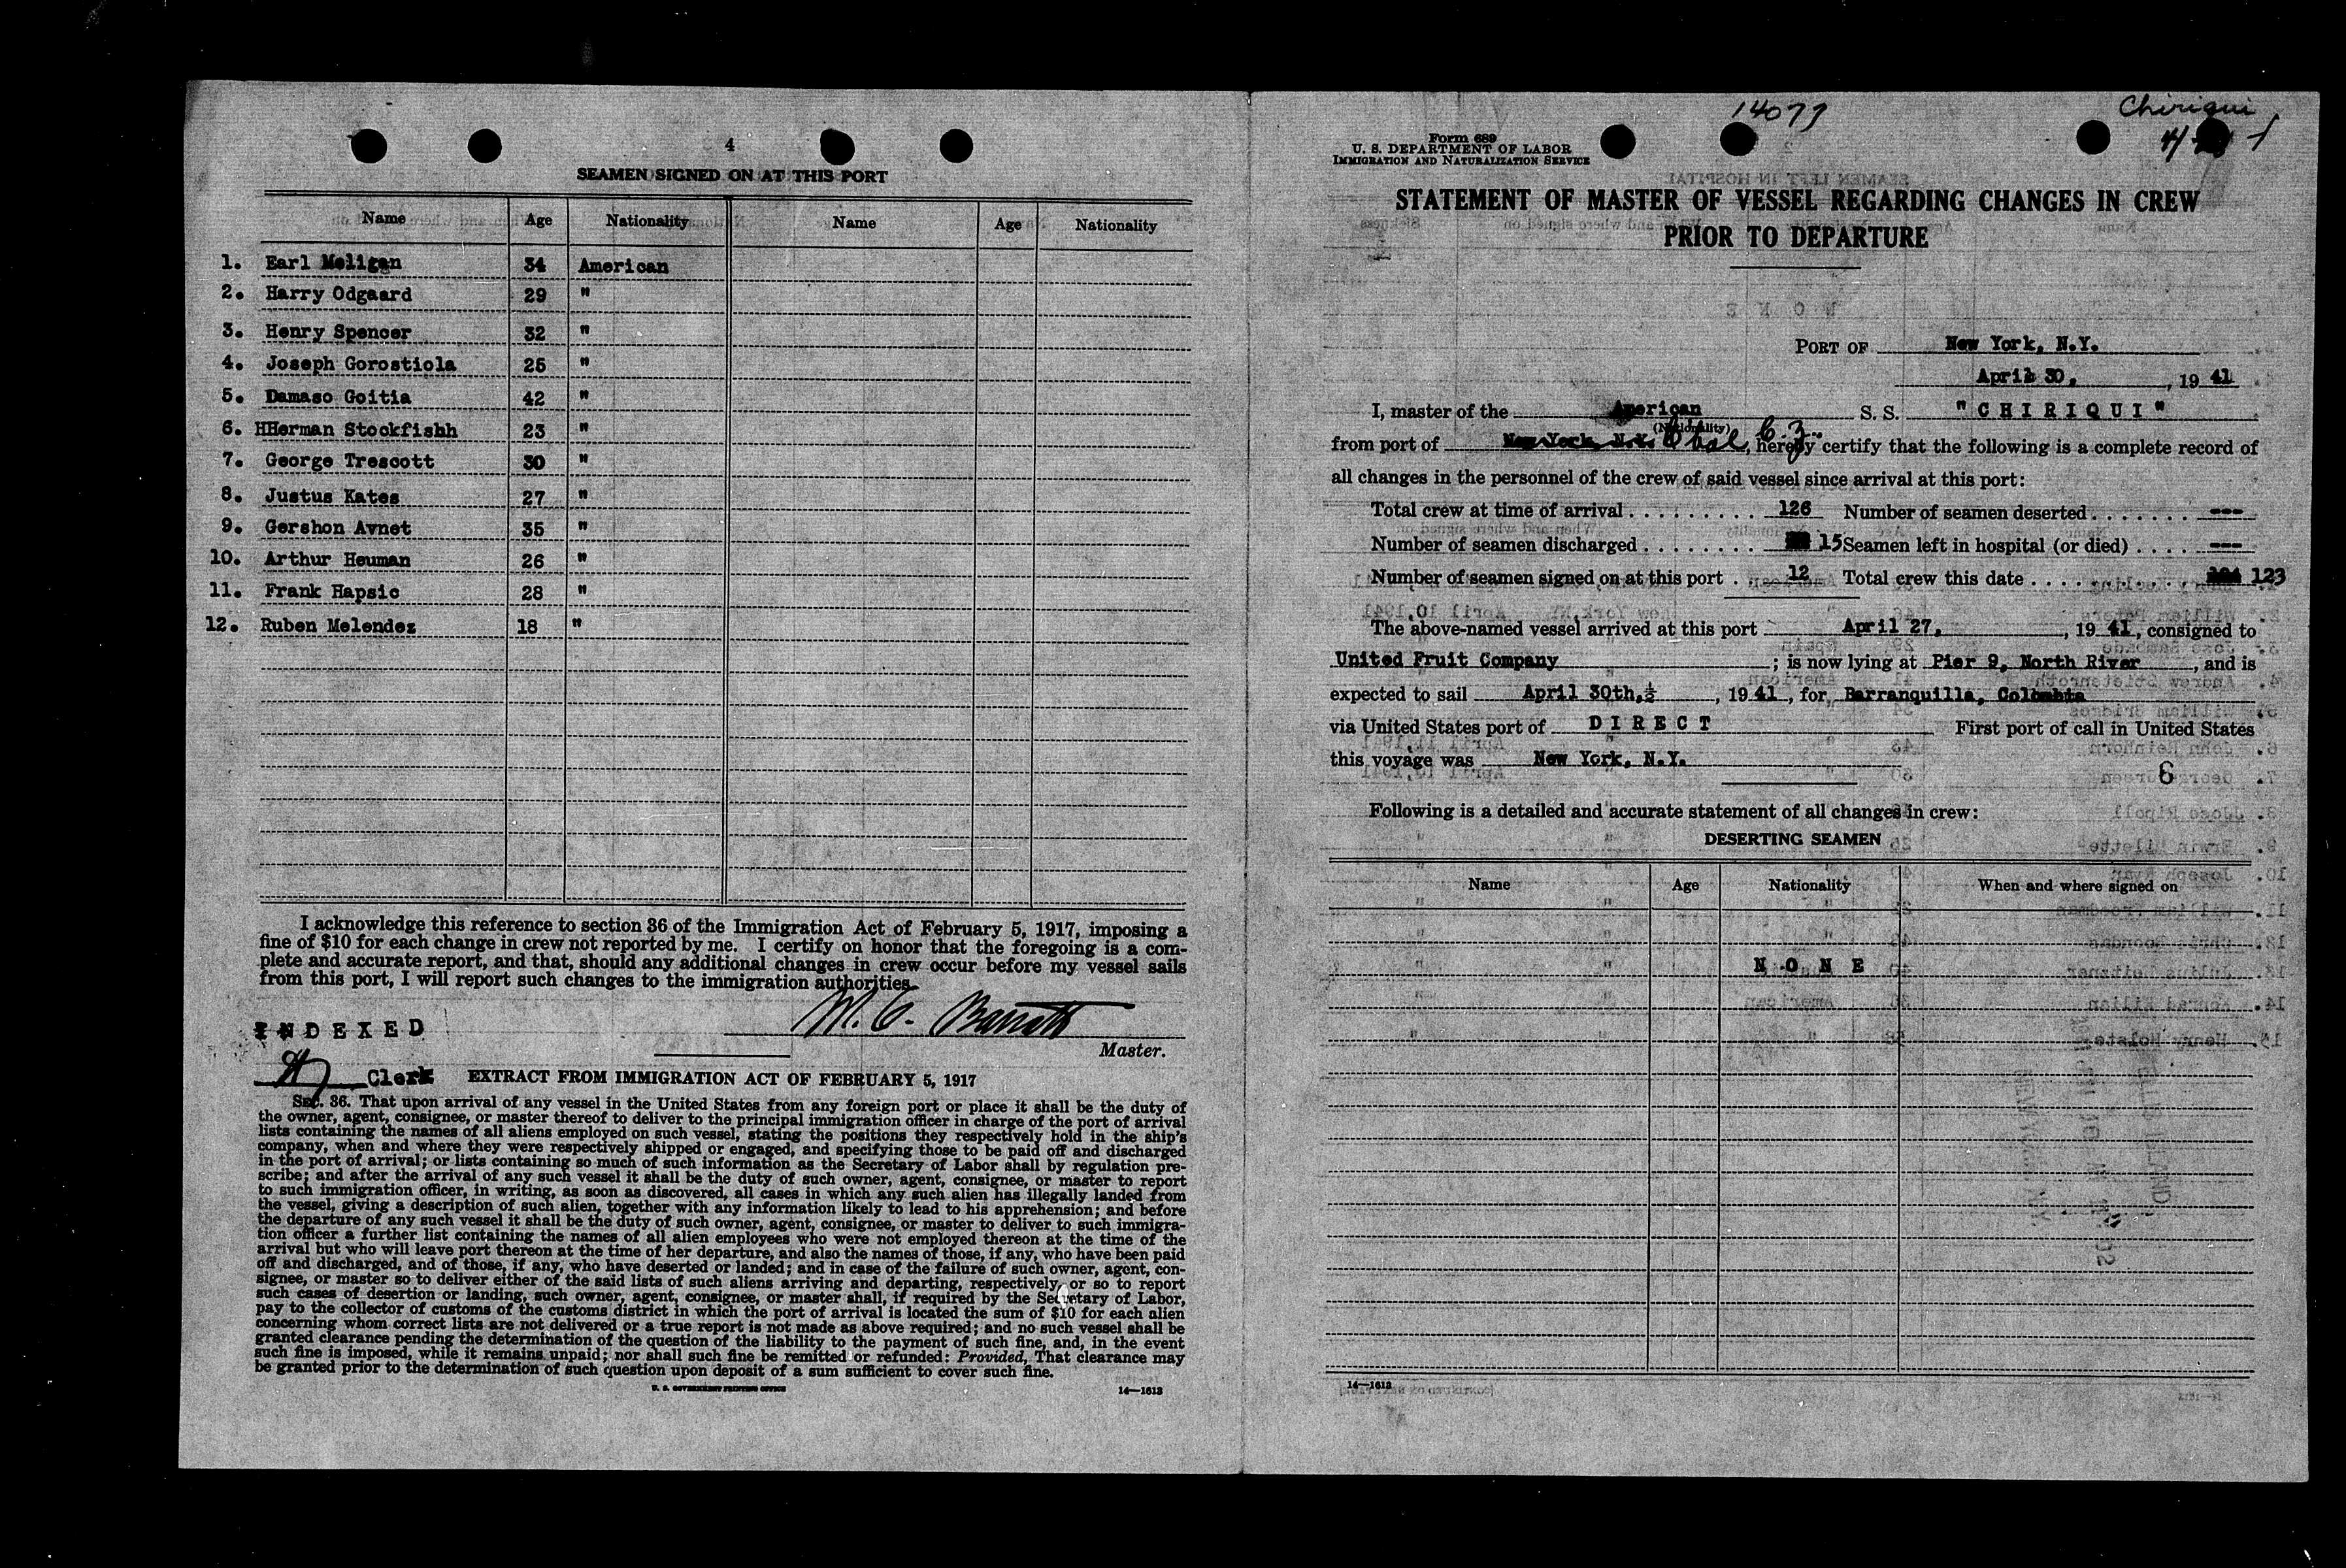 4
SEAMEN SIGNED ON AT THIS PORT
Name Age Nationality Name Age Nationality
1. Earl Meligan 34 American
2. Harry Odgaard 29 "
3. Henry Spencer 32 "
4. Joseph Gorostiola 25 "
5. Damaso Goitia 42 "
6. HHerman Stockfishh 23 "
7. George Trescott 30 "
8. Justus Kates 27 "
9. Gershon Avnet 35 "
10. Arthur Heuman 26 "
11. Frank Hapsic 28 "
12. Ruben Melendez 18 "
I acknowledge this reference to section 36 of the Immigration Act of February 5, 1917, imposing a
fine of $10 for each change in crew not reported by me. I certify on honor that the foregoing is a com-
plete and accurate report, and that, should any additional changes in crew occur before my vessel sails
from this port, I will report such changes to the immigration authorities.
INDEXED
Master.
Clerk EXTRACT FROM IMMIGRATION ACT OF FEBRUARY 5, 1917
SEC. 36. That upon arrival of any vessel in the United States from any foreign port or place it shall be the duty of
the owner, agent, consignee, or master thereof to deliver to the principal immigration officer in charge of the port of arrival
lists containing the names of all aliens employed on such vessel, stating the positions they respectively hold in the ship's
company, when and where they were respectively shipped or engaged, and specifying those to be paid off and discharged
in the port of arrival; or lists containing so much of such information as the Secretary of Labor shall by regulation pre-
scribe; and after the arrival of any such vessel it shall be the duty of such owner, agent, consignee, or master to report
to such immigration officer, in writing, as soon as discovered, all cases in which any such alien has illegally landed from
the vessel, giving a description of such alien, together with any information likely to lead to his apprehension; and before
the departure of any such vessel it shall be the duty of such owner, agent, consignee, or master to deliver to such immigra-
tion officer a further list containing the names of all alien employees who were not employed thereon at the time of the
arrival but who will leave port thereon at the time of her departure, and also the names of those, if any, who have been paid
off and discharged, and of those, if any, who have deserted or landed; and in case of the failure of such owner, agent, con-
signee, or master so to deliver either of the said lists of such aliens arriving and departing, respectively, or so to report
such cases of desertion or landing, such owner, agent, consignee, or master shall, if required by the Secretary of Labor,
pay to the collector of customs of the customs district in which the port of arrival is located the sum of $10 for each alien
concerning whom correct lists are not delivered or a true report is not made as above required; and no such vessel shall be
granted clearance pending the determination of the question of the liability to the payment of such fine, and, in the event
such fine is imposed, while it remains unpaid; nor shall such fine be remitted or refunded: Provided, That clearance may
be granted prior to the determination of such question upon deposit of a sum sufficient to cover such fine.
U. S. GOVERNMENT PRINTING OFFICE 14—1613
14077 Chiriqui
Form 689
U. S. DEPARTMENT OF LABOR
IMMIGRATION AND NATURALIZATION SERVICE
STATEMENT OF MASTER OF VESSEL REGARDING CHANGES IN CREW
PRIOR TO DEPARTURE
PORT OF New York, N.Y.
April 30, , 19 41
I, master of the American S. S. "CHIRIQUI"
(Nationality)
from port of New York, N.Y. C.Z., hereby certify that the following is a complete record of
all changes in the personnel of the crew of said vessel since arrival at this port:
Total crew at time of arrival . . . . . . . . . 126 Number of seamen deserted . . . . . . . ---
Number of seamen discharged . . . . . . . . 15 Seamen left in hospital (or died) . . . . ---
Number of seamen signed on at this port . 12 Total crew this date . . . . . . . . . . 123
The above-named vessel arrived at this port April 27, , 19 41, consigned to
United Fruit Company ; is now lying at Pier 9, North River , and is
expected to sail April 30th, , 19 41, for Barranquilla, Colombia
via United States port of DIRECT First port of call in United States
this voyage was New York, N.Y.
6
Following is a detailed and accurate statement of all changes in crew:
DESERTING SEAMEN
Name Age Nationality When and where signed on
NONE
14—1613